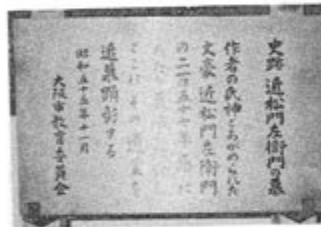 史跡 近松門左衛門の墓
作者の氏神とあがめられた
文豪近松門左衛門
の二百五十
ここにその遺
遺義顕彰する
昭和五十五年十一月
大阪市教育委員会